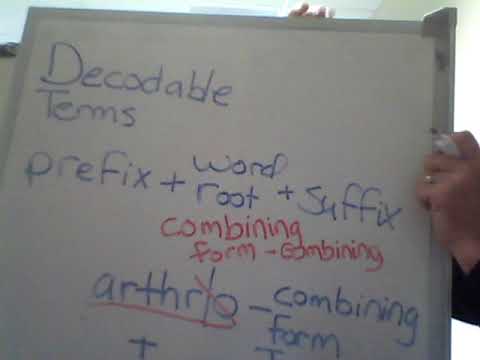 Decodable
Terms
prefix + word root + suffix
combining
form - combining
arthr/o - combining
form